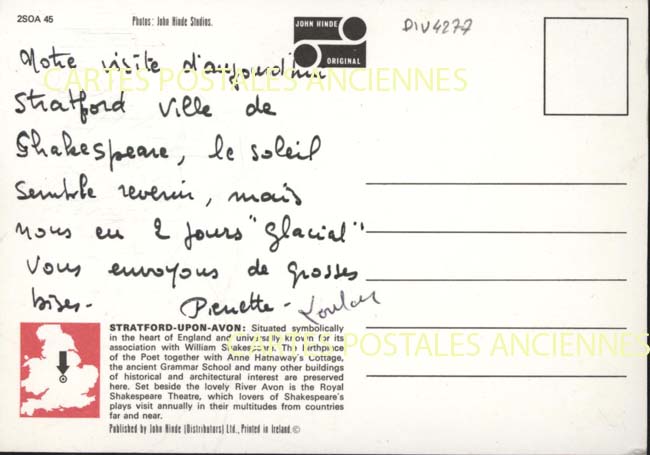 2SOA 45
Photos: John Hinde Studios.
JOHN HINDE
ORIGINAL
DIV4277
Notre visite d'aujourd'hui
Stratford Ville de
Shakespeare, le soleil
semble revenir, mais
nous en 2 jours "Glacial"
Vous envoyons de grosses
bises- Pierrette-
CARTES POSTALES ANCIENNES
STRATFORD-UPON-AVON: Situated symbolically
in the heart of England and universally known for its
association with William Shakespeare. The birthplace
of the Poet together with Anne Hathaway's Cottage,
the ancient Grammar School and many other buildings
of historical and architectural interest are preserved
here. Set beside the lovely River Avon is the Royal
Shakespeare Theatre, which lovers of Shakespeare's
plays visit annually in their multitudes from countries
far and near.
CARTES POSTALES ANCIENNES
Published by John Hinde (Distributors) Ltd., Printed in Ireland.©